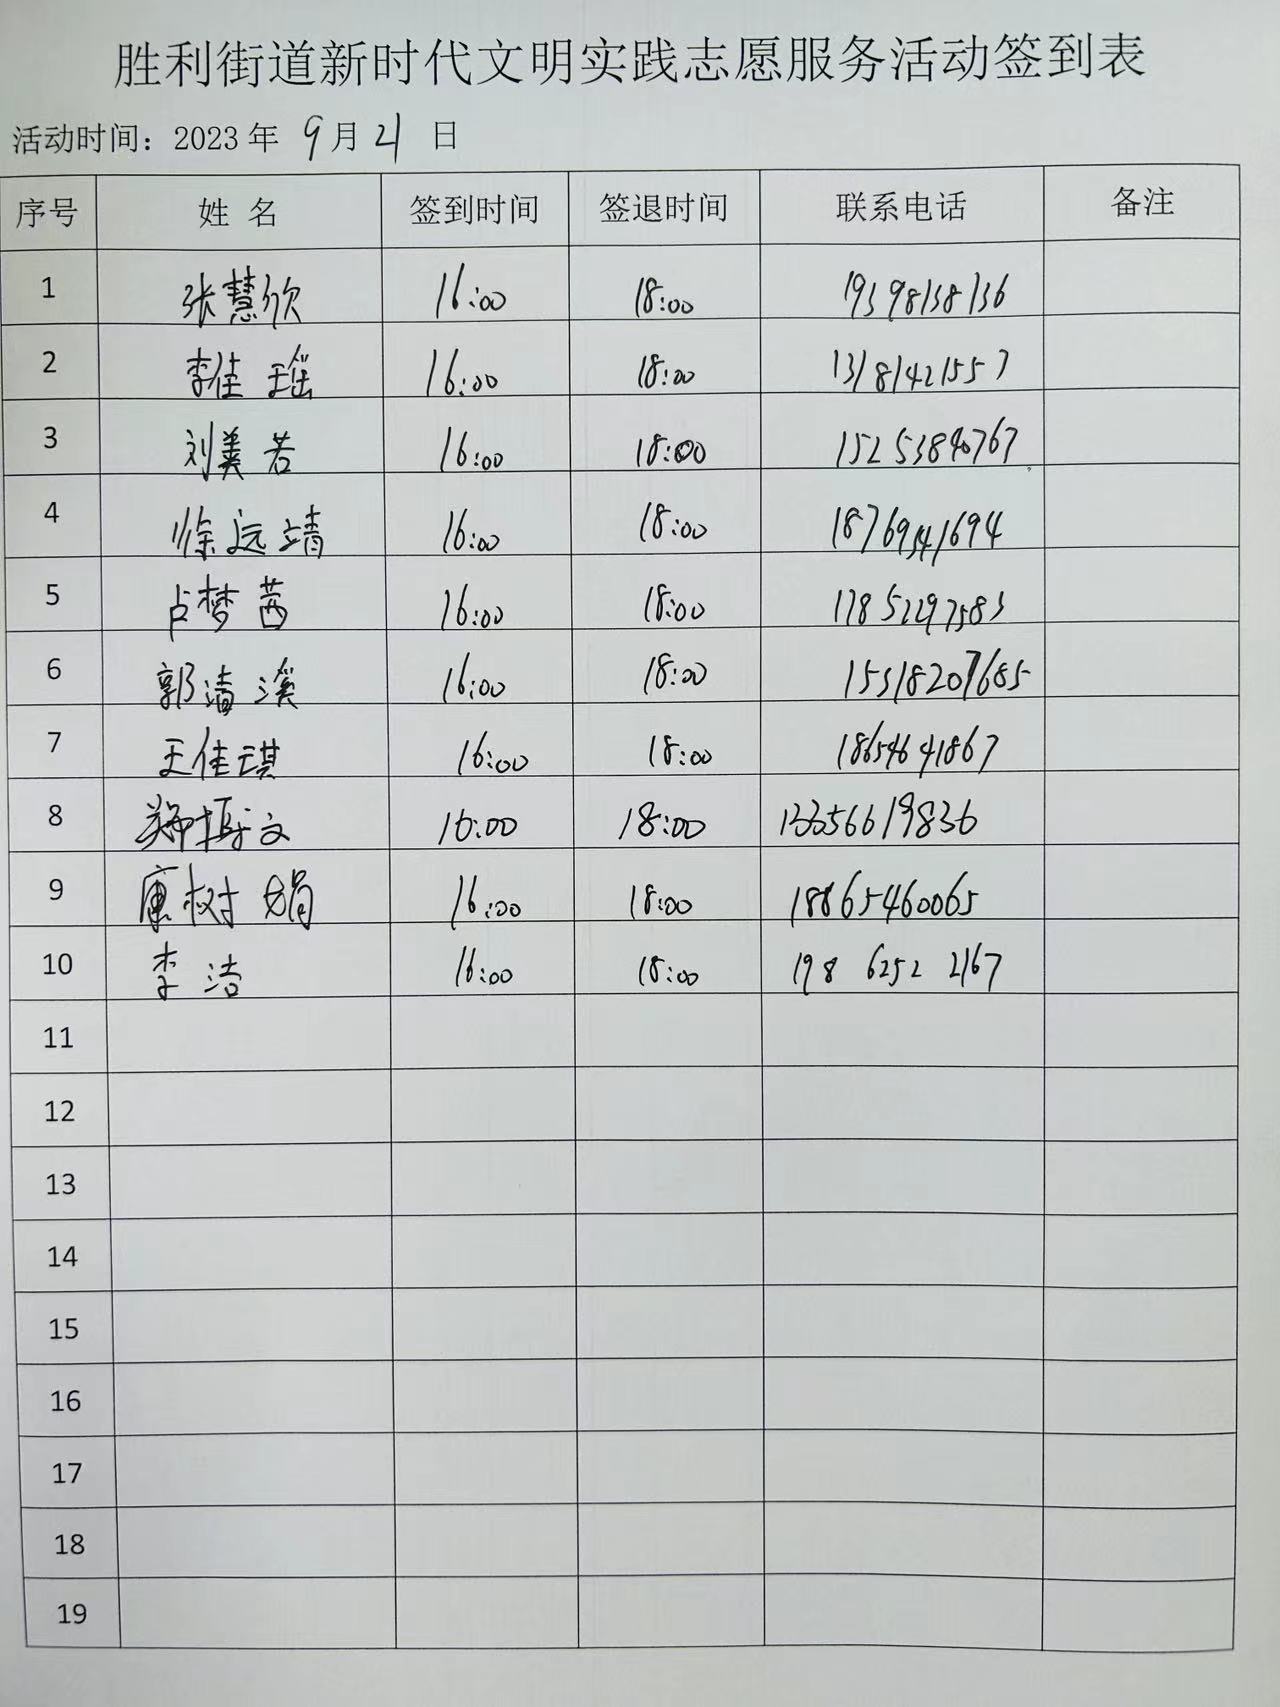 胜利街道新时代文明实践志愿服务活动签到表
活动时间：2023 年 9 月 21 日
序号 姓 名 签到时间 签退时间 联系电话 备注
1 张慧欣 16:00 18:00 19398138136
2 李佳瑶 16:00 18:00 13181421557
3 刘美若 16:00 18:00 15253840767
4 徐远靖 16:00 18:00 18769341694
5 卢梦茜 16:00 18:00 17852297583
6 郭清溪 16:00 18:00 15318207685
7 王佳琪 16:00 18:00 18654641867
8 郑文 16:00 18:00 13356619836
9 康树娟 16:00 18:00 18865460065
10 李洁 16:00 18:00 198 6252 2167
11
12
13
14
15
16
17
18
19